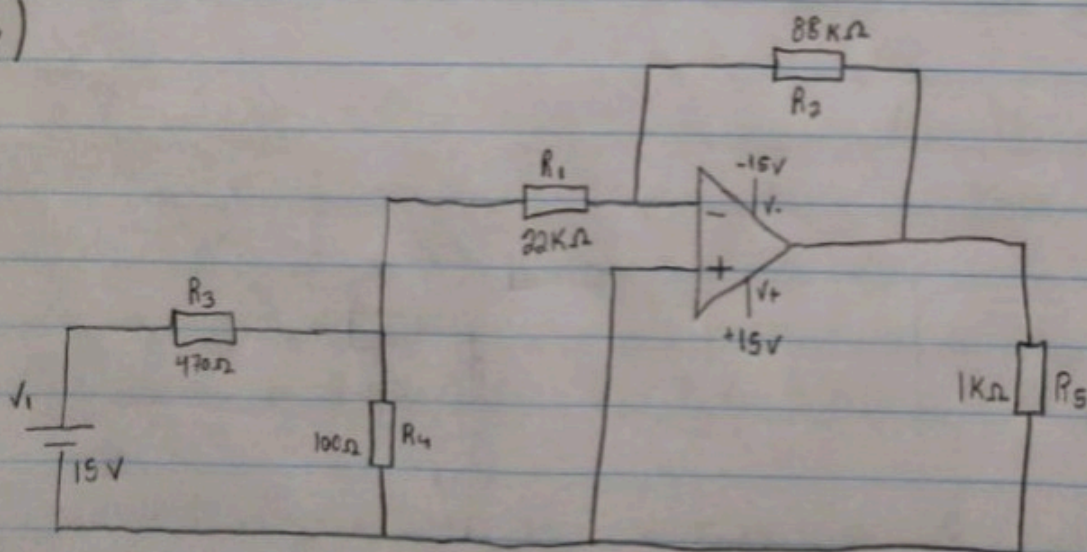 )
88KΩ
R2
-15V
V-
R1
22KΩ
-
+
V+
+15V
R3
470Ω
V1
15V
100Ω
R4
1KΩ
R5